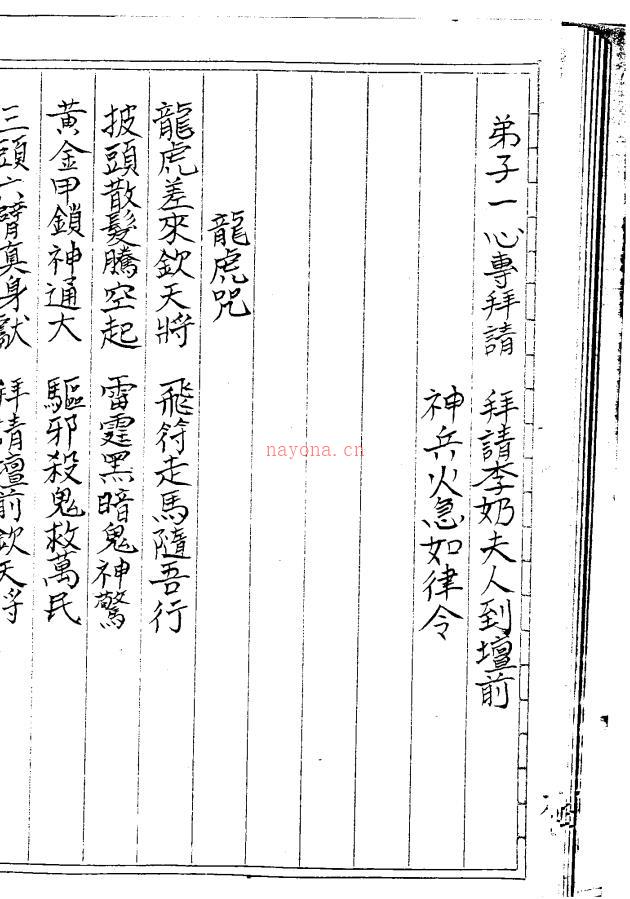 弟子一心專拜請　拜請李奶夫人到壇前
神兵火急如律令
龍虎咒
龍虎差來欽天將　飛符走馬隨吾行
披頭散髮騰空起　雷霆黑暗鬼神驚
黃金甲鎖神通大　驅邪殺鬼救萬民
三頭六臂真身獻　拜請壇前欽天將
nayona.cn